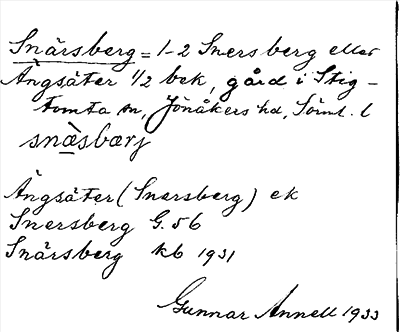 Snärsberg = 1-2 Snersberg eller
Ängsäter 1/2 bek, gård i Stig-
tomta sn, Jönåkers hd, Söml. l
snæsbærj
Ängsäter (Snersberg) ek
Snersberg G. 56
Snärsberg kb 1931
Gunnar Annell 1933